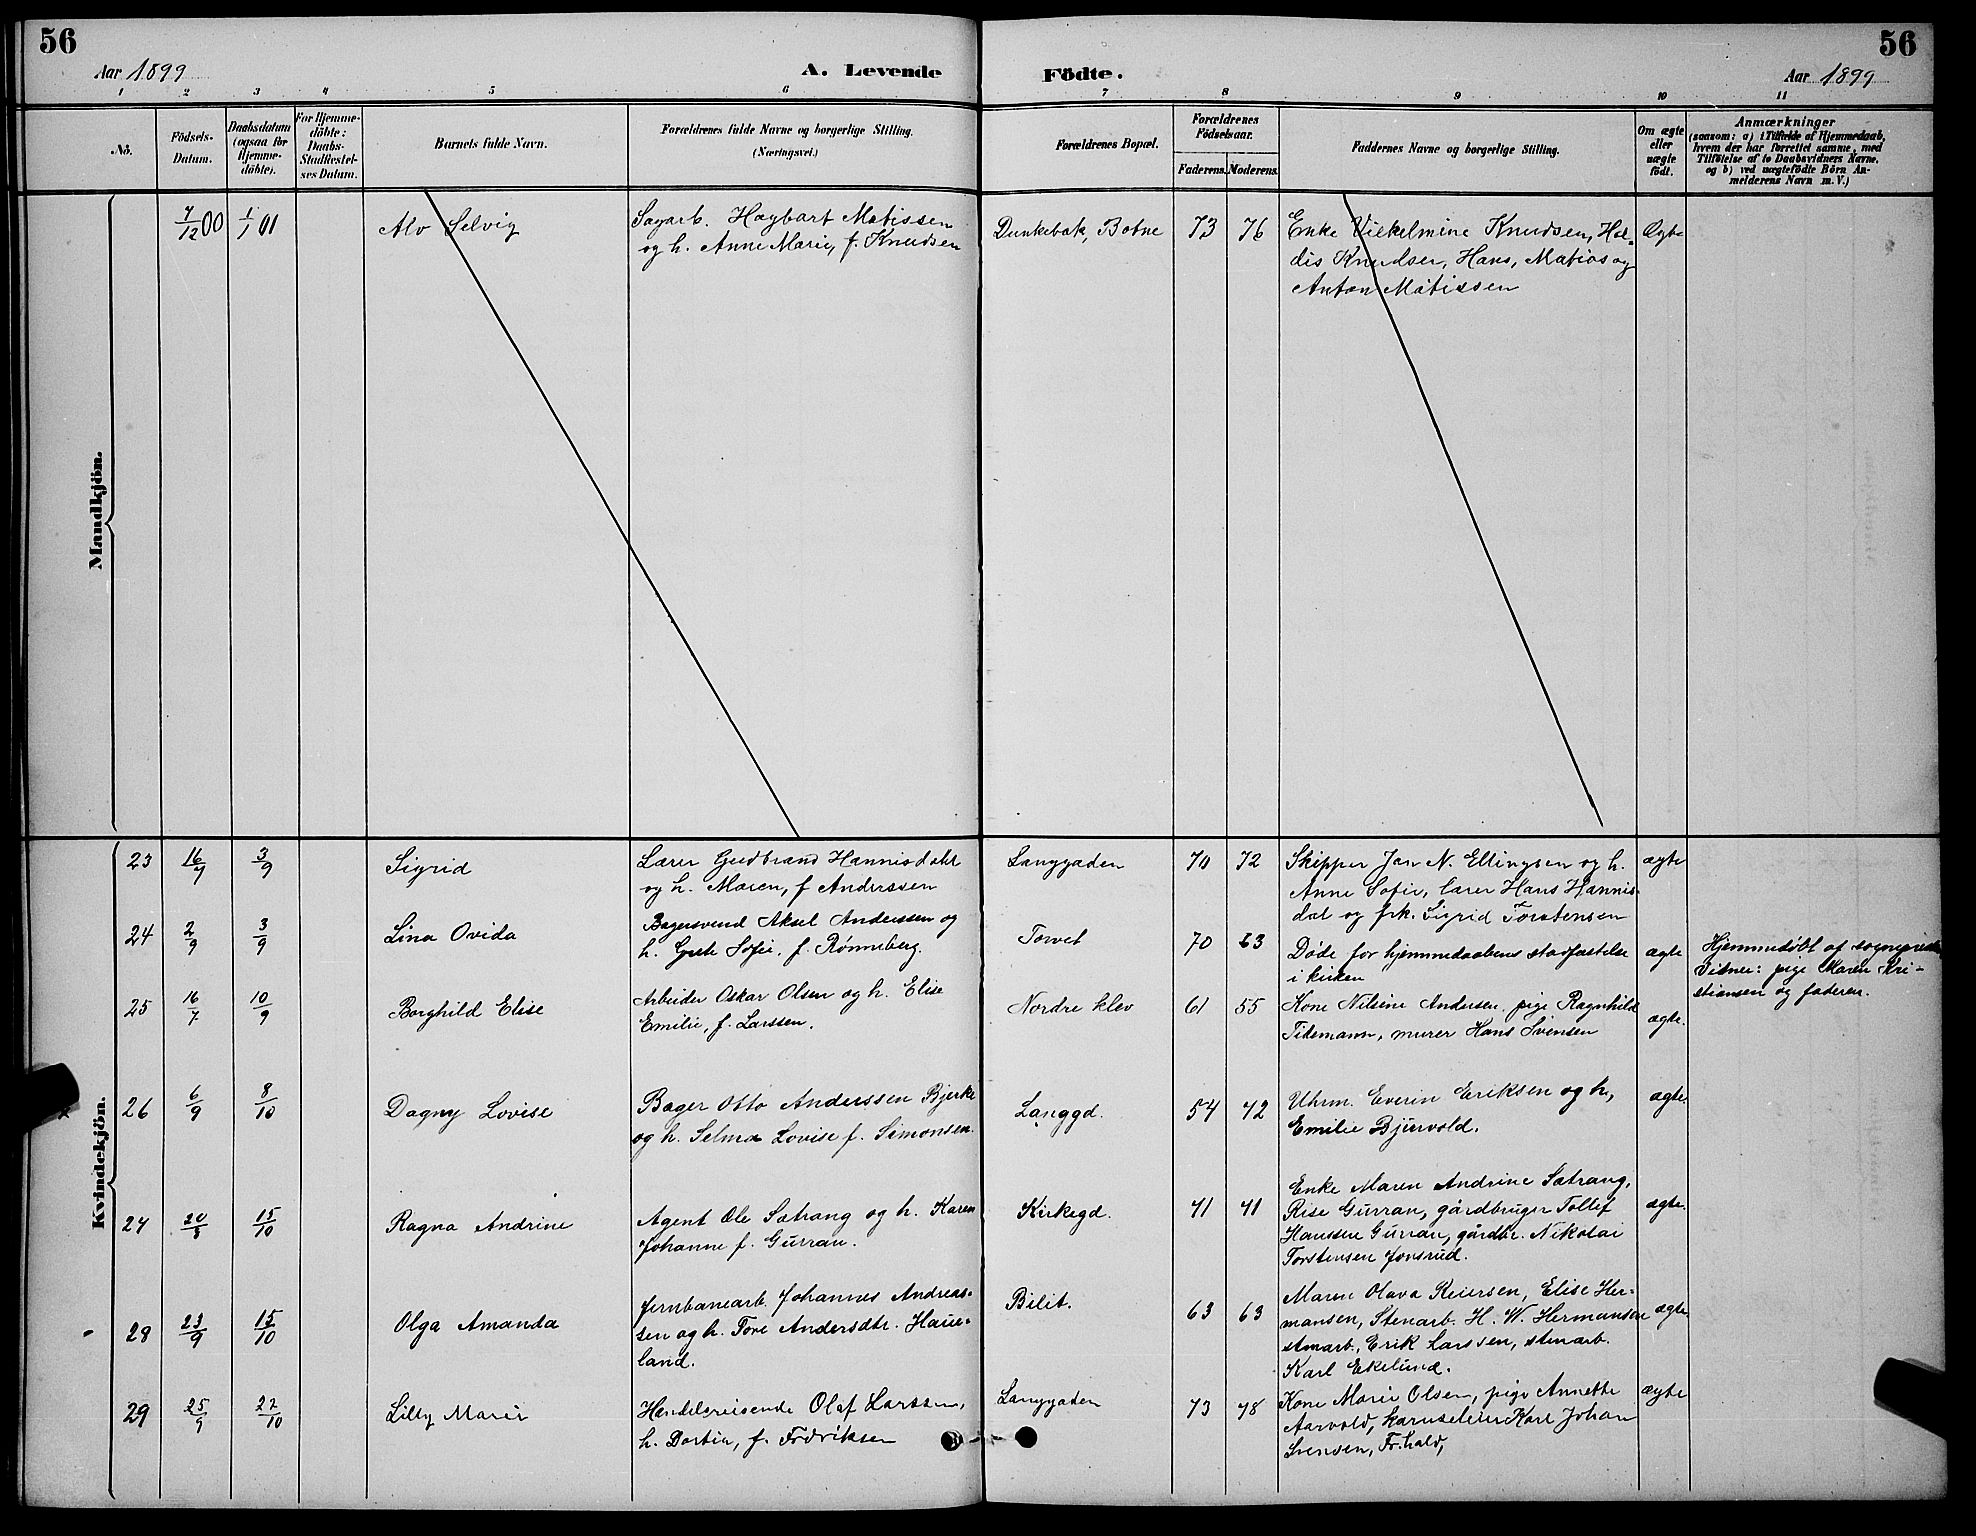 56
Aar 1899
A. Levende
Födte.
Aar 1899
56
1 2 3 4 5 6 7 8 9 10 11
No.
Födsels-
Datum.
Daabsdatum
(ogsaa for
Hjemme-
döbte).
For Hjemme-
döbte:
Daabs-
Stadfæstel-
ses Datum.
Barnets fulde Navn.
Forældrenes fulde Navne og borgerlige Stilling.
(Næringsvei.)
Forældrenes Bopæl.
Forældrenes
Födselsaar.
Faderens. Moderens.
Faddernes Navne og borgerlige Stilling.
Om ægte
eller
uægte
födt.
Anmærkninger
(saasom: a) i Tilfælde af Hjemmedaab,
hvem der har forrettet samme, med
Tilföielse af to Daabsvidners Navne,
og b) ved uægtefödte Börn An-
melderens Navn m. V.)
Mandkjön.
7/12 00 1/1 01 Alv Selvig
Sagarb. Hagbart Matissen
og h. Anne Marie, f. Knudsen
Dunkebæk, Botne 73 76
Enke Vilhelmine Knudsen, Hal-
dis Knudsen, Hans, Matias og
Anton Matissen
Ægte
Kvindekjön.
23 3/9 Sigrid
Lærer Gudbrand Hannisdahl
og h. Maren, f Anderssen
Langgaden 70 72
Skipper Jan N. Ellingsen og h.
Anne Sofie, lærer Hans Hannis-
dal og frk. Sigrid Torstensen
ægte
24 2/9 3/9 Lina Ovida
Bagersvend Aksel Anderssen og
h. Grete Sofie, f. Rønneberg.
Torvet 70 63
Døde før hjemmedaabens stadfæstelse
i kirken
ægte
Hjemmedøbt af sogneprest
Vidner: pige Maren Kri-
stiansen og faderen.
25 16/7 10/9 Borghild Elise
Arbeider Oskar Olsen og h. Elise
Emilie, f. Larssen.
Nordre klev 61 55
Kone Nilsine Andersen, pige Ragnhild
Tidemann, murer Hans Svensen
ægte.
26 6/9 8/10 Dagny Lovise
Bager Otto Anderssen Bjerke
og h. Selma Lovise f. Simonsen.
Langgd. 54 72
Uhrm. Everin Eriksen og h,
Emilie Bjurvold.
ægte.
27 15/10 Ragna Andrine
Agent Ole Sætrang og h. Karen
Johanne f. Gurran.
Kirkegd. 71 71
Enke Maren Andrine Sætrang,
Rise Gurran, gårdbruger Tollef
Hanssen Gurran, gårdbr. Nikolai
Torstensen Jonsrud.
ægte.
28 23/9 15/10 Olga Amanda
Jernbanearb. Johannes Andreas-
sen og h. Tore Andersdtr. Haue-
land.
Bilit. 63 63
Maren Olava Reiersen, Elise Her-
mansen, Stenarb. H. W. Hermansen
stenarb., Erik Larssen, stenarb.
Karl Ekelund.
ægte
29 25/9 22/10 Lilly Marie
Handelsreisende Olaf Larssen,
h. Dortia, f. Fredriksen
Langgaden 73 78
Kone Marie Olsen, pige Annette
Aarvold, Karl Johan
Svensen, Fr.hald,
ægte